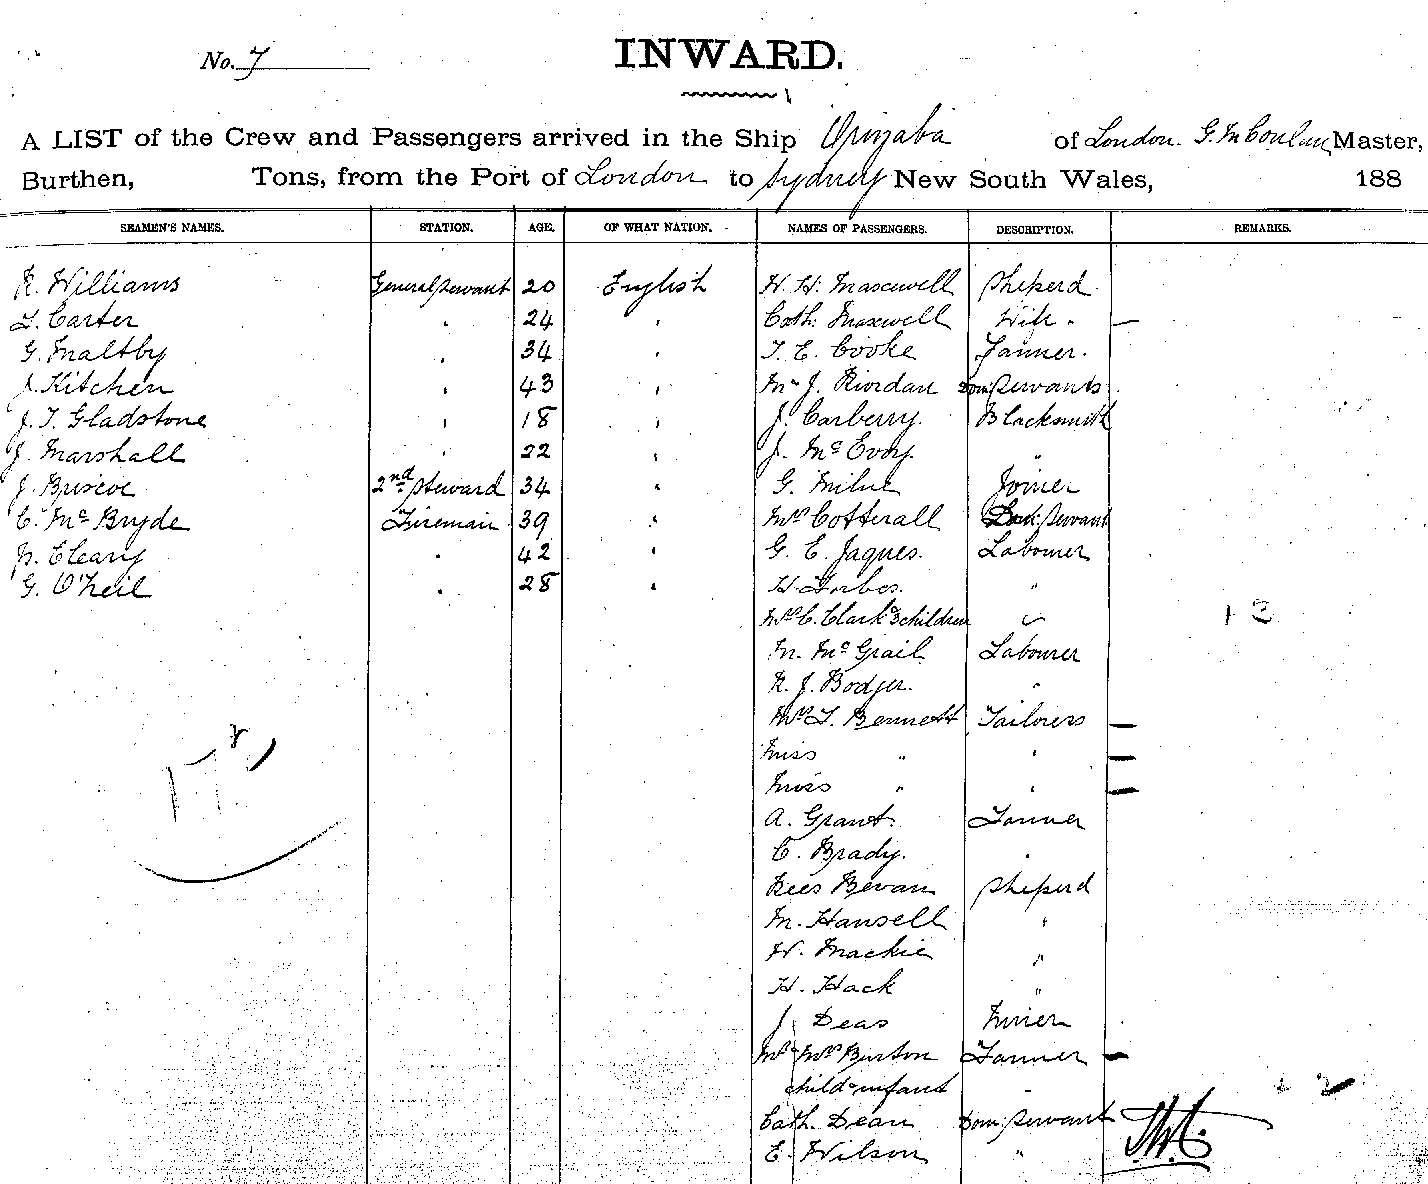 No. 7
INWARD.
A LIST of the Crew and Passengers arrived in the Ship Orizaba of London. G. Master,
Burthen, Tons, from the Port of London to Sydney New South Wales, 188
SEAMEN'S NAMES. STATION. AGE. OF WHAT NATION. NAMES OF PASSENGERS. DESCRIPTION. REMARKS.
R. Williams General Servant 20 English H. H. Maxwell Sheperd
T. Carter " 24 " Cath. Maxwell Wife " —
G. Maltby " 34 " T. E. Cooke Farmer.
J. Kitchen " 43 " J. Riordan Dom Servants
J. T. Gladstone " 18 " J. Carberry. Blacksmith
J. Marshall " 22 " J. McEvoy. "
J. Briscoe 2nd Steward 34 " G. Milne Joiner
C. McBryde Fireman 39 " Mrs Cotterall Servant
Cleary " 42 " G. E. Jaques. Labourer
G. O'Neil " 28 " H. Forbes. "
Mrs C. Clark 3 children 13
M. McGrail Labourer
R. J. Bodger. "
Mrs T. Bennett Tailoress —
Miss " " —
Miss " " —
A. Grant. Farmer
C. Brady. "
Rees Bevan Sheperd
M. Hansell "
W. Mackie "
H. Hack "
J. Deas Miner
Mr Mrs Burton Farmer —
child infant " 2
Cath. Dean Dom Servant
E. Wilson "